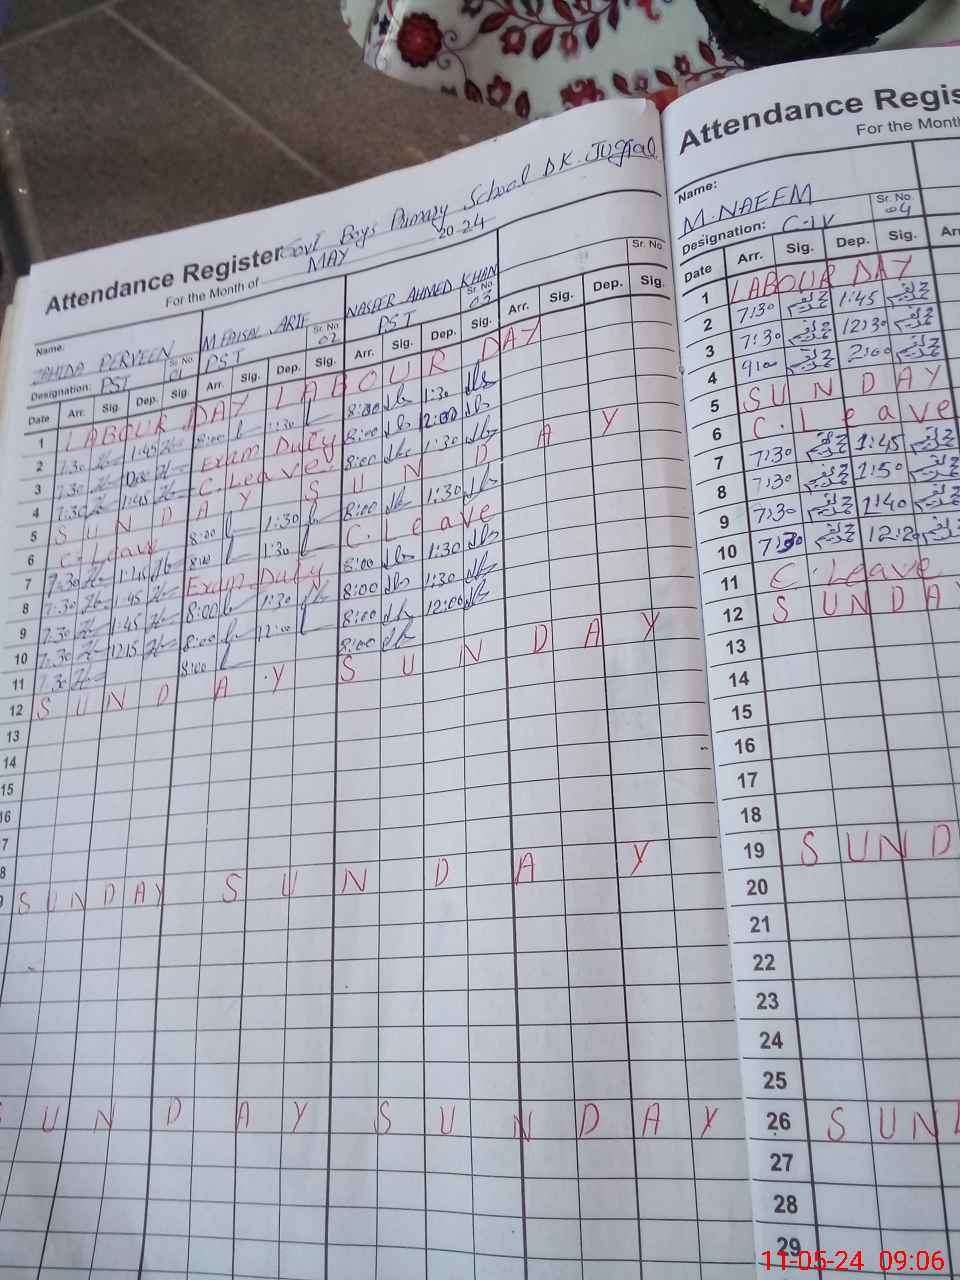 Attendance Register Govt Boys Primary School DK. Jugial
For the Month of MAY 2024
Name: ZAHIDA PERVEEN M FAISAL ARIF NASEER AHMED KHAN
Designation: PST Sr. No. 01 PST Sr. No. 02 PST Sr. No. 03 Sr. No.
Date Arr. Sig. Dep. Sig. Arr. Sig. Dep. Sig. Arr. Sig. Dep. Sig. Arr. Sig. Dep. Sig.
1 LABOUR DAY LABOUR DAY
2 7:30 1:45 8:00 1:30 8:00 1:30
3 7:30 Exam Duty 8:00 12:00
4 7:30 1:45 C. Leave 8:00 1:30
5 SUNDAY SUNDAY
6 C. Leave 8:00 1:30 8:00 1:30
7 7:30 1:45 8:00 1:30 C. Leave
8 7:30 1:45 Exam Duty 8:00 1:30
9 7:30 1:45 8:00 1:30 8:00 1:30
10 7:30 12:15 8:00 12:00 8:00 12:00
11 7:30 8:00 8:00
12 SUNDAY SUNDAY
13
14
15
16
7
8
SUNDAY SUNDAY
SUNDAY SUNDAY
Attendance Regis
For the Month
Name: M. NAEEM
Designation: C-IV Sr. No. 04
Date Arr. Sig. Dep. Sig. Arr
1 LABOUR DAY
2 7:30 1:45
3 7:30 12:30
4 9:00 2:00
5 SUNDAY
6 C. Leave
7 7:30 1:45
8 7:30 1:50
9 7:30 1:40
10 7:30 12:20
11 C. Leave
12 SUNDAY
13
14
15
16
17
18
19 SUND
20
21
22
23
24
25
26 SUN
27
28
29
11-05-24 09:06